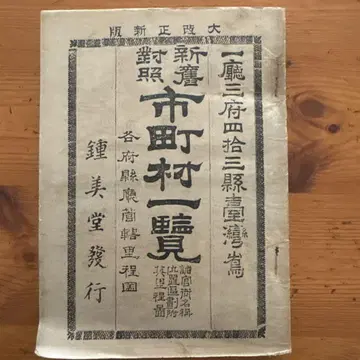 大改正新版
一廳三府四拾三縣臺灣嶌
新舊
對照
市町村一覽
各府縣廳管轄里程圖
鍾美堂發行